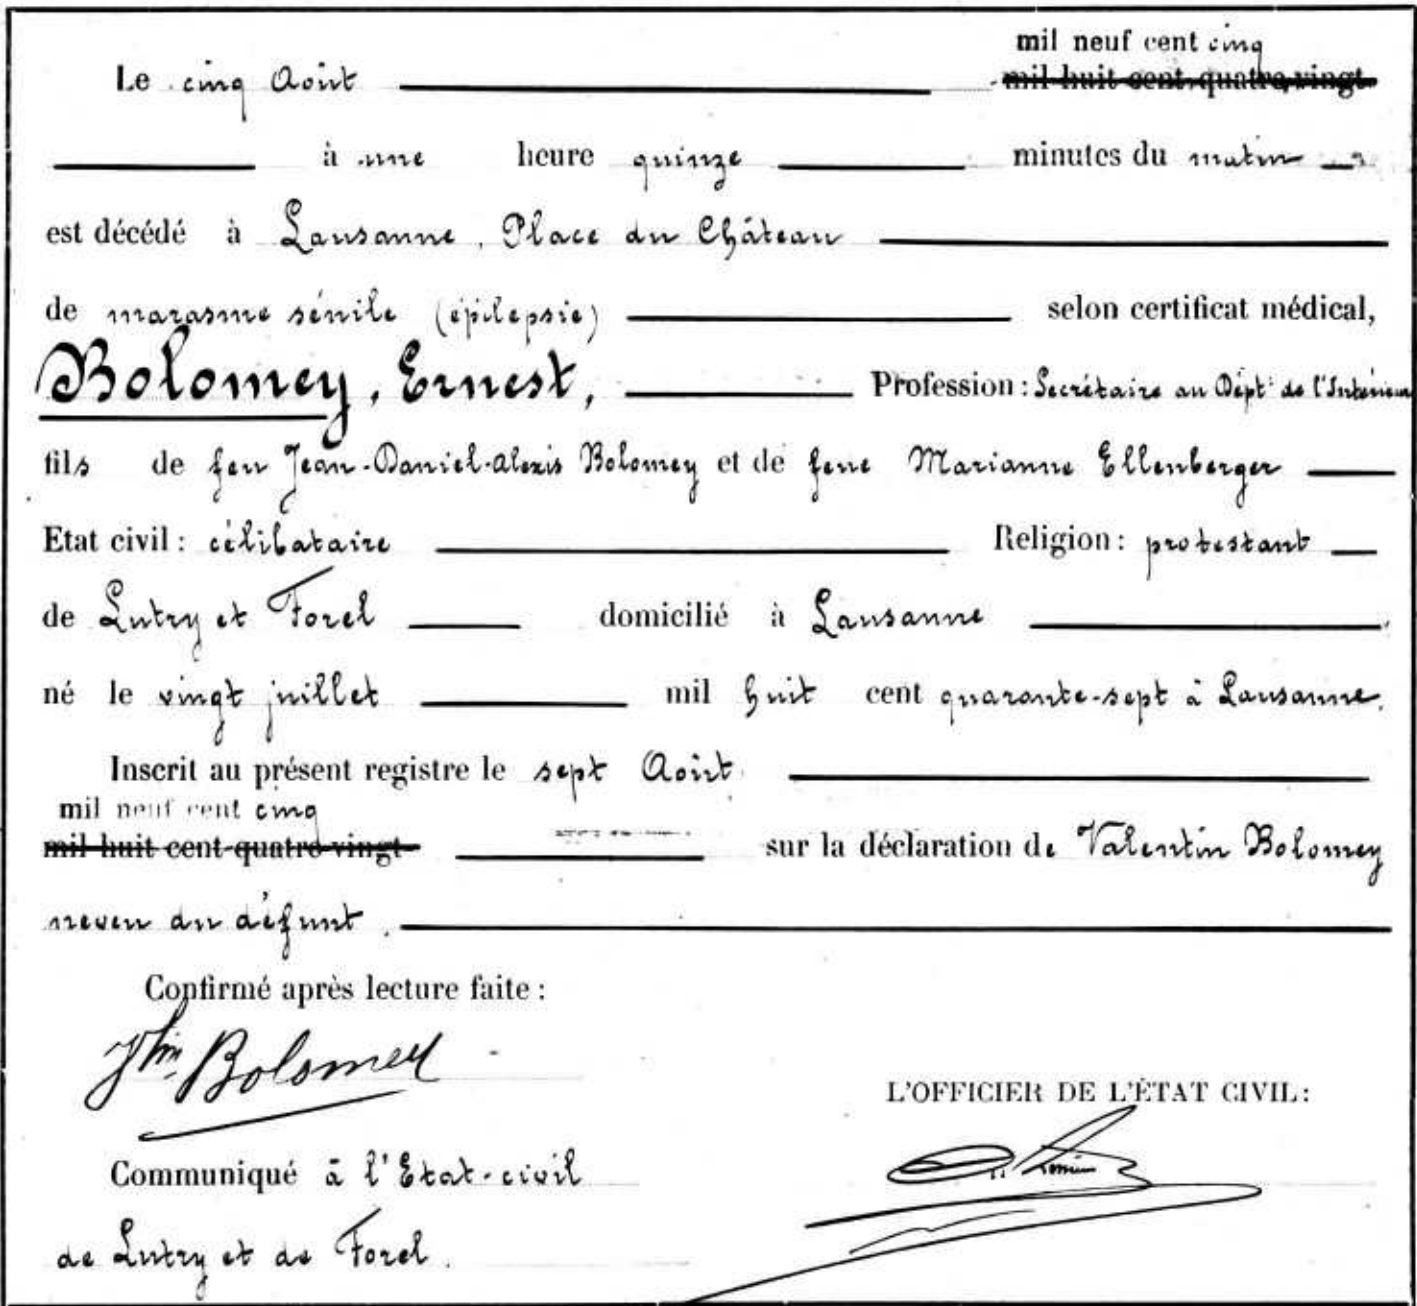 mil neuf cent cinq
Le cinq Août mil huit cent quatre-vingt
à une heure quinze minutes du matin
est décédé à Lausanne, Place du Château
de marasme sénile (épilepsie) selon certificat médical,
Bolomey, Ernest, Profession : Secrétaire au Dépt. de l'Intérieur
fils de feu Jean-Daniel-Alexis Bolomey et de feue Marianne Ellenberger
Etat civil : célibataire Religion : protestant
de Lutry et Forel domicilié à Lausanne
né le vingt juillet mil huit cent quarante-sept à Lausanne.
Inscrit au présent registre le sept Août
mil neuf cent cinq
mil huit cent quatre-vingt sur la déclaration de Valentin Bolomey
neveu du défunt.
Confirmé après lecture faite :
Bolomey
L'OFFICIER DE L'ÉTAT CIVIL :
Communiqué à l'Etat-civil
de Lutry et de Forel.